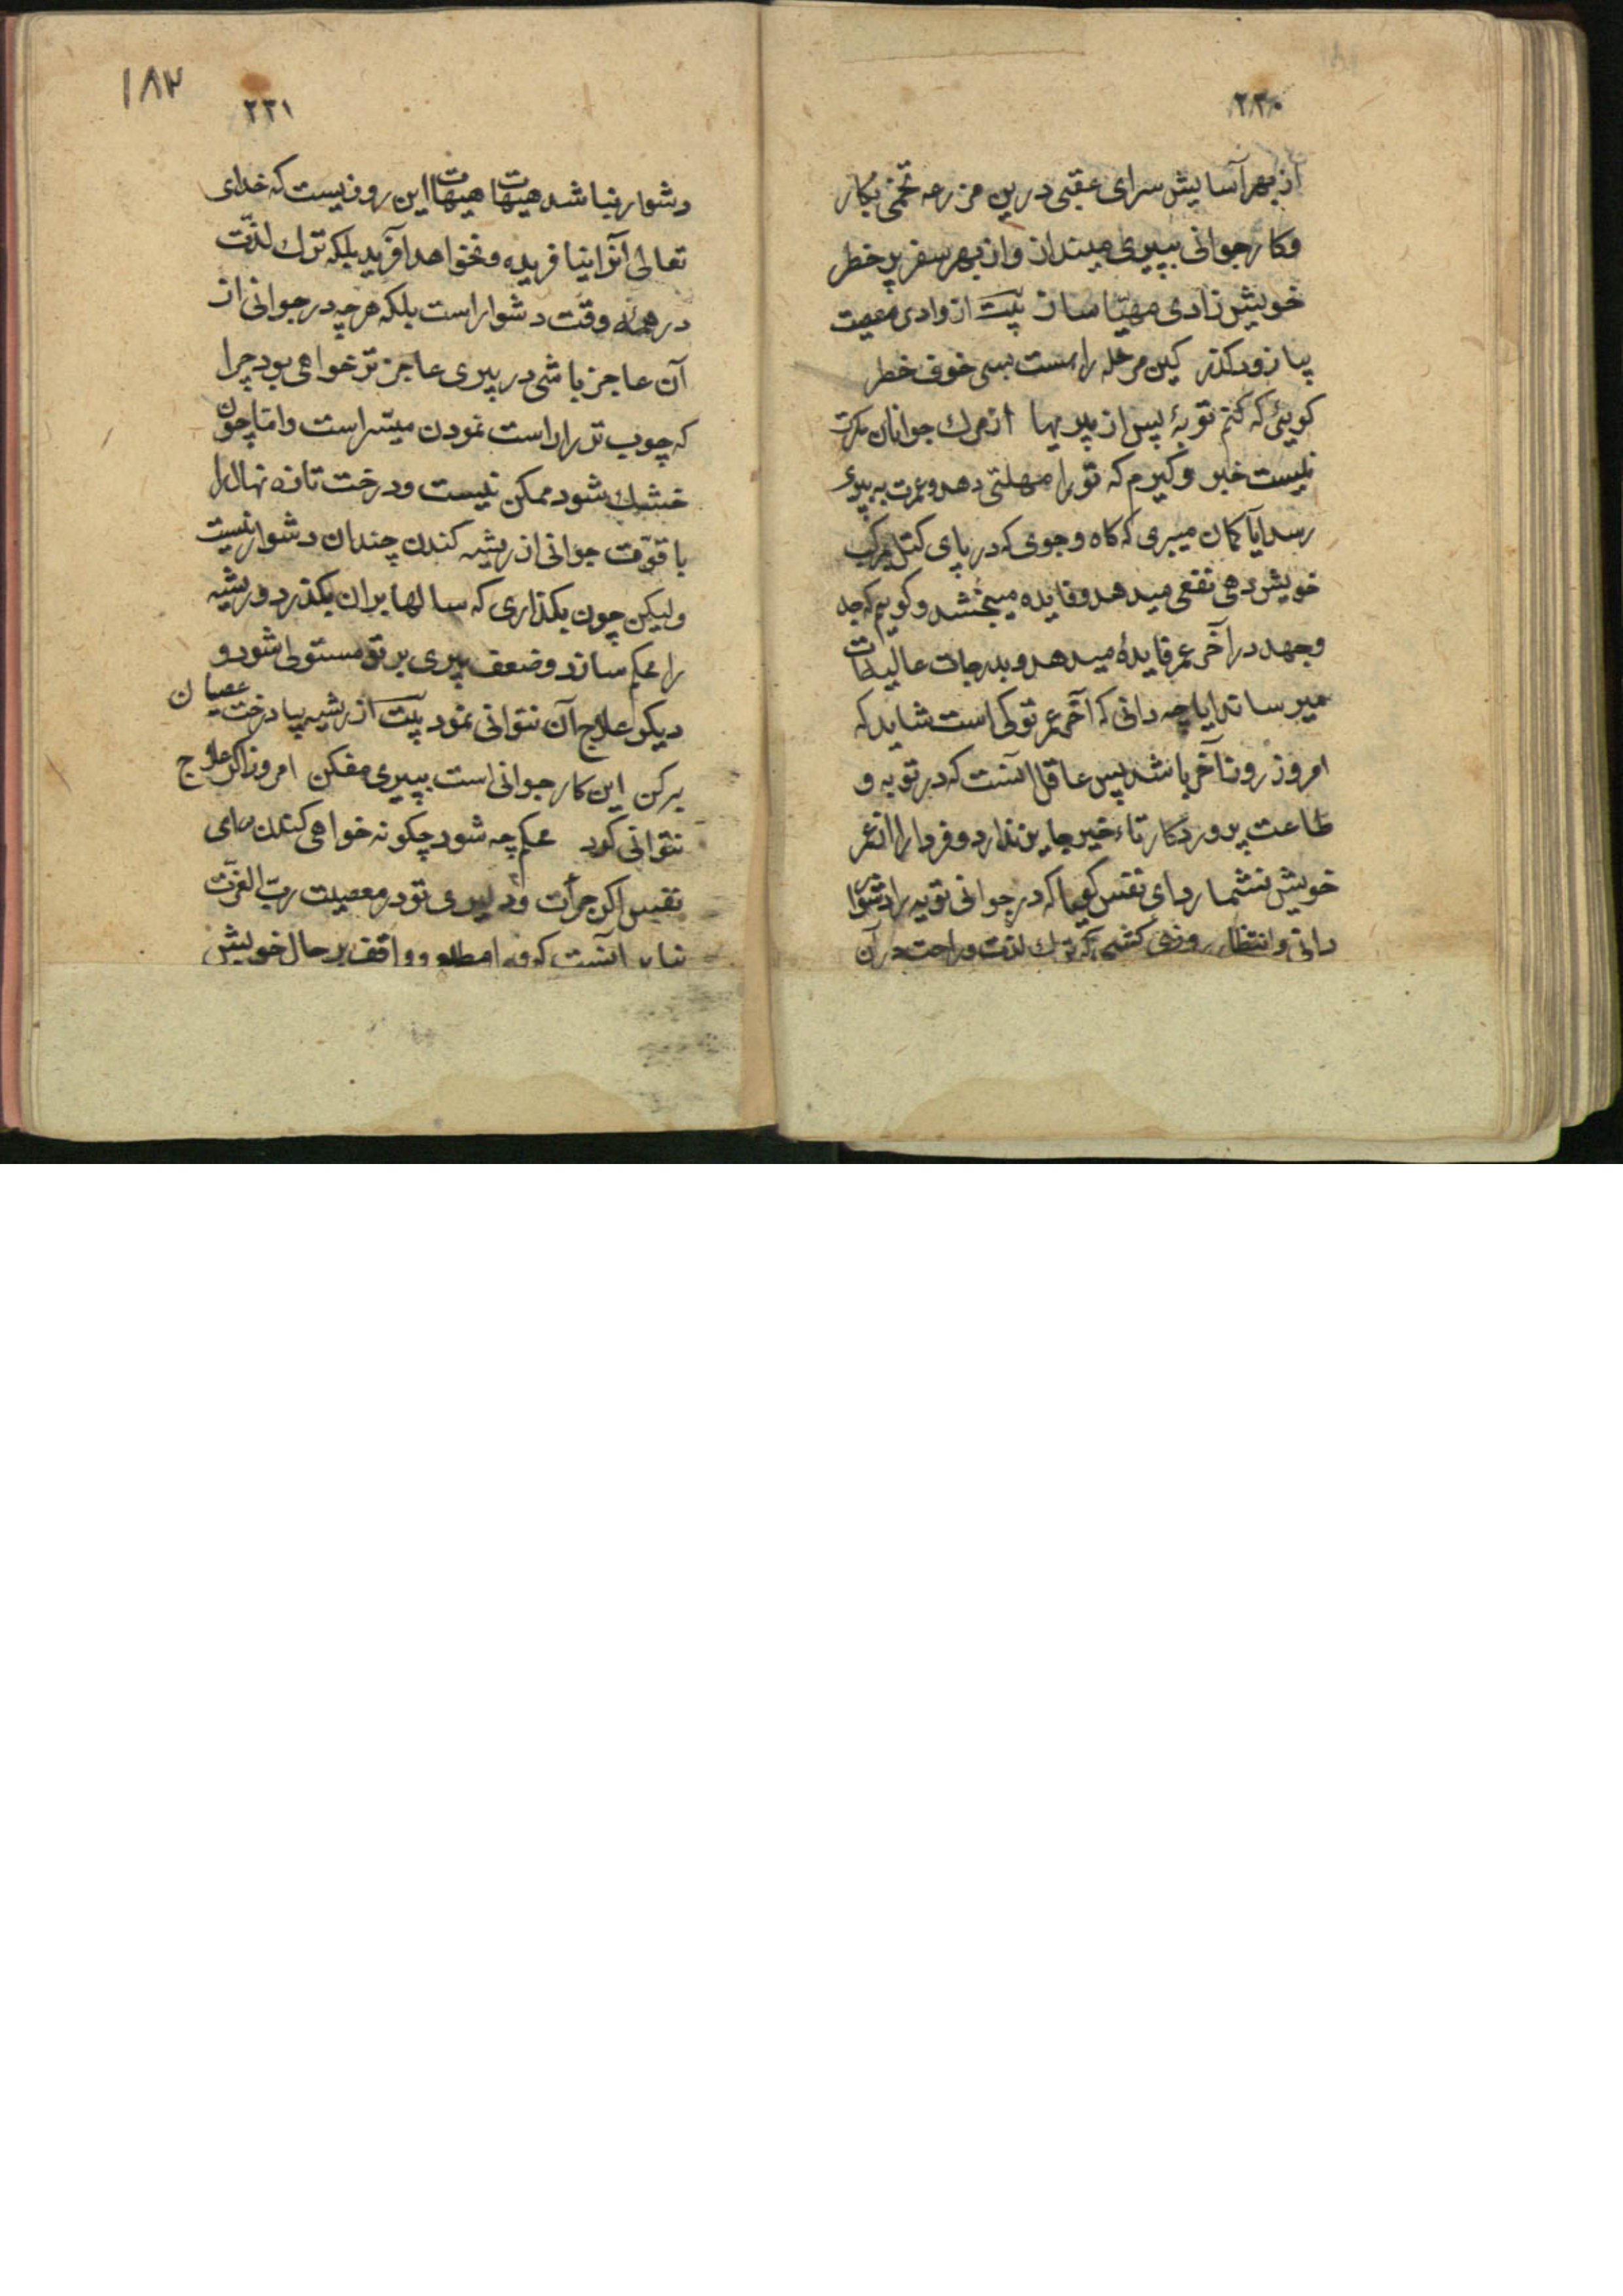 ۲۳۰
از بهر آسایش سرای عقبی درین مزرعه تخمی بکار
و کار جوانی بپیری میندازو از بهر سفر پر خطر
خویش زادی مهیّا ساز بیت از وادی معصیت
بیا زود کذر کین مرحله راست بسی خوف خطر
کویئی که کنم توبهٔ پس از پیریها از مرك جوانان مکرت
نیست خبر و کیرم که تو را مهلتی دهد و عمرت به پیری
رسد آیا کمان میبری که کاه و جوی که در پای کتل بمرکب
خویش دهی نفعی میدهد و فایده میبخشد و کویم که جد
و جهد در آخر عمر فایدهٔ میدهد و بدرجات عالیات
میرساند ایا چه دانی که آخر عمر تو کی است شاید که
امروز روز آخر باشد پس عاقل آنست که در توبه و
طاعت پروردکار تاءخیر جایز ندارد و فردا را از عمر
خویش نشمارد ای نفس کویا که در جوانی توبه را دشوار
دانی و انتظار روزی کشی که ترك لذت و راحت در آن
۱۸۳
۲۳۱
دشوار نباشد هیهات هیهات این روزیست که خدای
تعالی آنرا نیافریده و نخواهد آفرید بلکه ترك لذّت
در همهٔ وقت دشوار است بلکه هر چه در جوانی از
آن عاجز باشی در پیری عاجز تر خواهی بود چرا
که چوب تر را راست نمودن میسّر است و امّا چون
خشك شود ممکن نیست و درخت تازه نهال را
با قوّت جوانی از ریشه کندن چندان دشوار نیست
ولیکن چون بکذاری که سالها بران بکذرد و ریشه
را محکم سازد و ضعف پیری بر تو مستولی شود و
دیکر علاج آن نتوانی نمود بیت از ریشه بیا درخت عصیان
برکن این کار جوانی است بپیری مفکن امروز اکر علاج
نتوانی کرد محکم چه شود چکونه خواهی کندن ای
نفس اکر جرأت و دلیری تو در معصیت ربّ العزّت
آنست که و واقف بر حال خویش